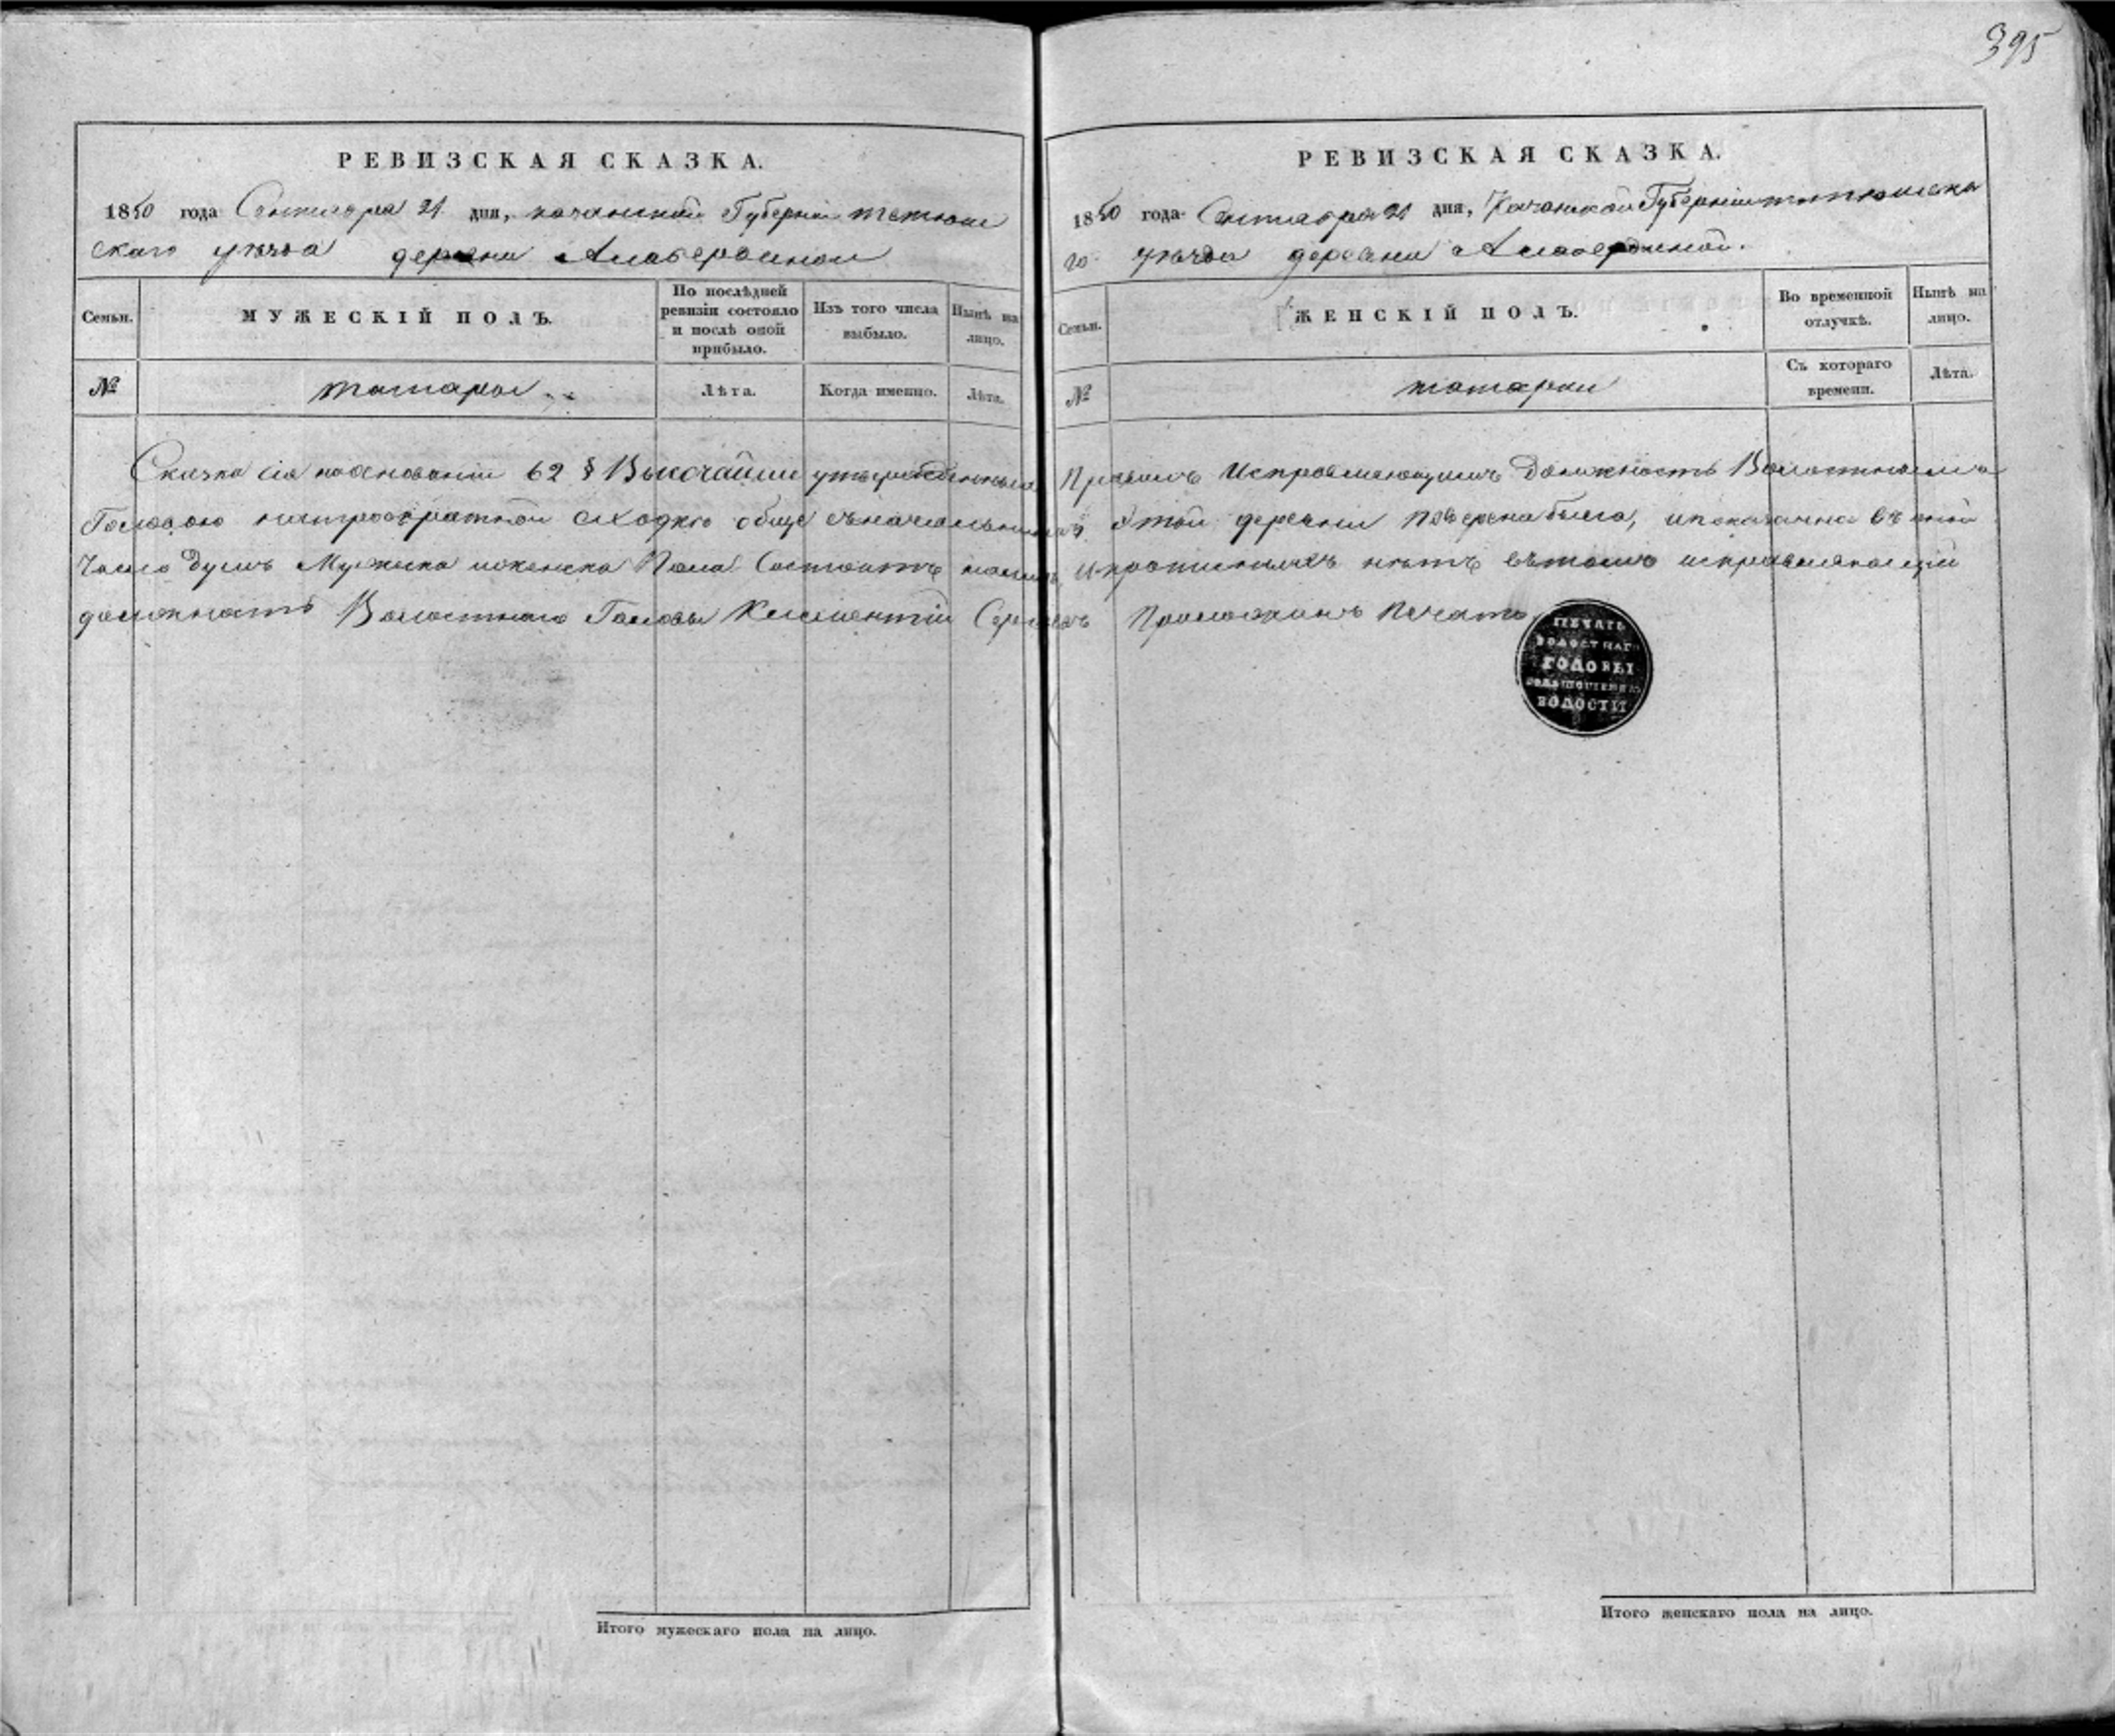 395
РЕВИЗСКАЯ СКАЗКА.
1850 года Сентября 21 дня, казанской Губерніи тетюш
скаго уѣзда деревни Алабердиной
Семьи.
МУЖЕСКІЙ ПОЛЪ.
По послѣдней ревизіи состояло и послѣ оной прибыло.
Изъ того числа выбыло.
Нынѣ на лицо.
№
татары
Лѣта.
Когда именно.
Лѣта.
РЕВИЗСКАЯ СКАЗКА.
1850 года Сентября 21 дня, Казанской Губерніи тетюшска
го уѣзда деревни Алабердиной.
Семьи.
ЖЕНСКІЙ ПОЛЪ.
Во временной отлучкѣ.
Нынѣ на лицо.
№
татарки
Съ котораго времени.
Лѣта.
Сказка сія наосновании 62 § Высочайше утвержденныхъ Правилъ Исправляющимъ Должность Волостнаго
Головою на сходкѣ обще съначальникомъ этой деревни повѣрена была, ипоказанна въ ней
число душъ Мужеска иженска Пола Состоитъ налицо, ипрописныхъ нѣтъ вътомъ исправляющій
должность Волостнаго Головы Климентій Сергѣевъ Приложилъ Печать
ПЕЧАТЬ
ВОЛОСТНАГО
ГОЛОВЫ
ВОЛОСТИ
Итого мужескаго пола на лицо.
Итого женскаго пола на лицо.